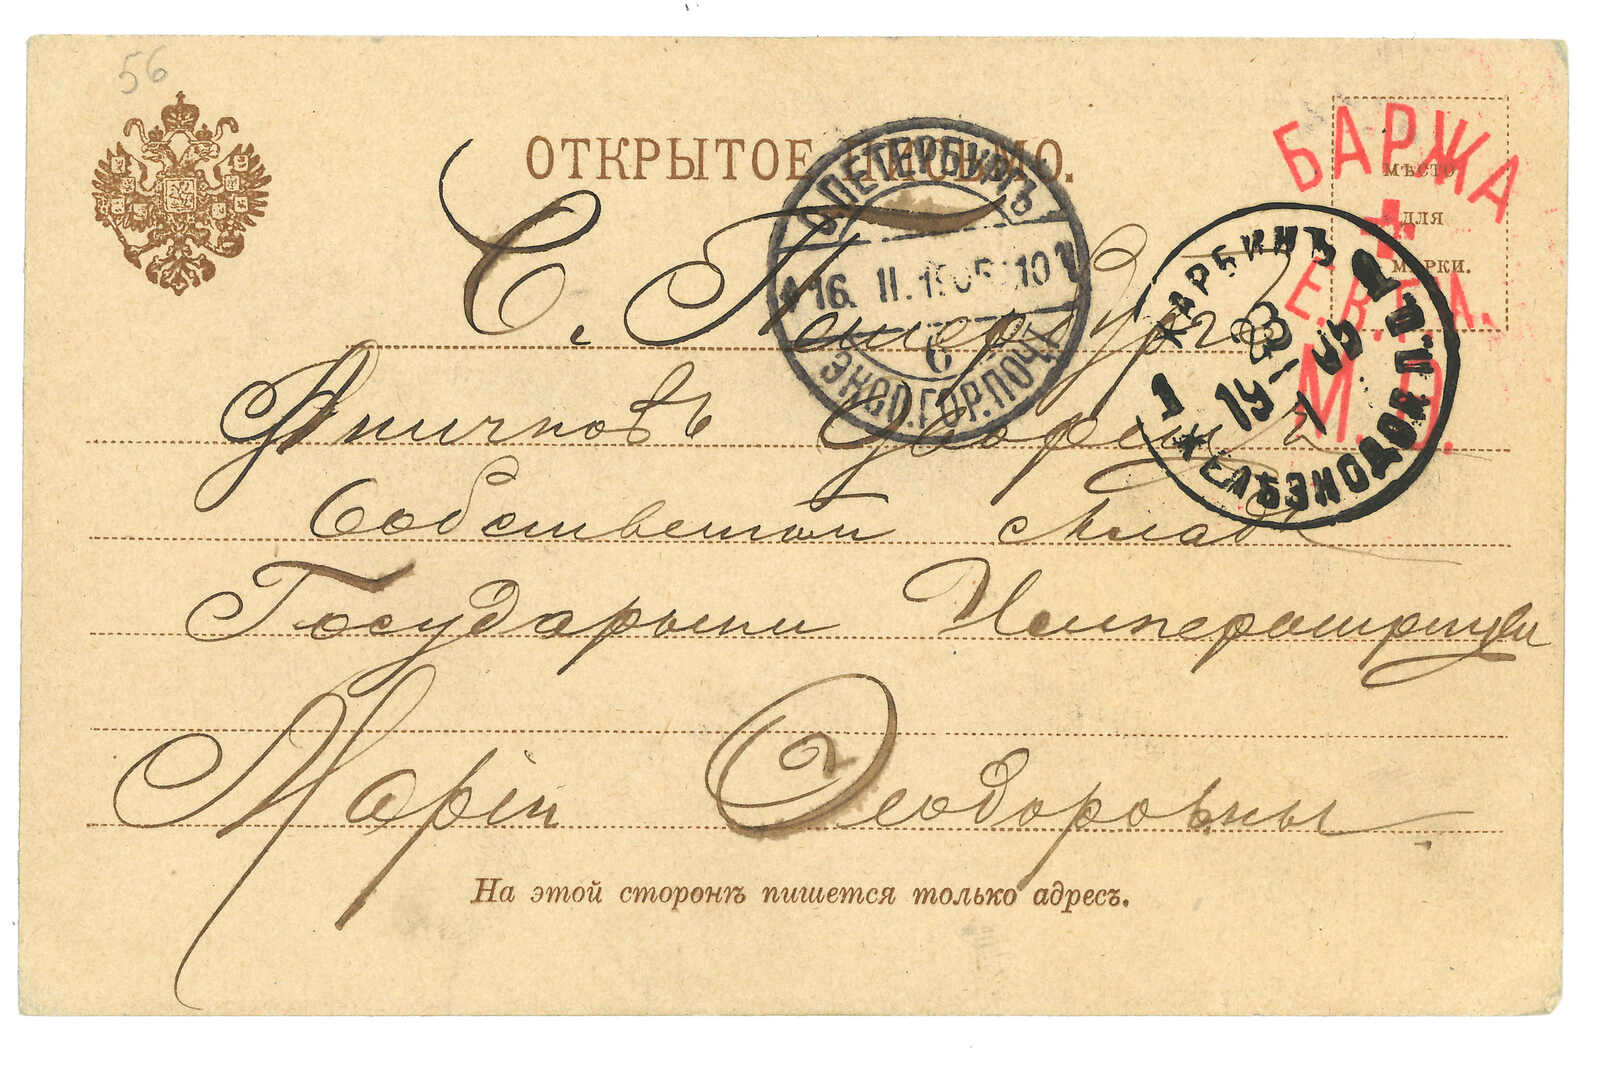 56
ОТКРЫТОЕ ПИСЬМО.
БАРЖА
МѢСТО
ДЛЯ
МАРКИ.
Е.В.
М.
С.ПЕТЕРБУРГЪ
16. II. 1905. 10
6
ЭКСП.ГОР.ПОЧТ
ХАРБИНЪ
1 23 1
19 05
ЖЕЛѢЗНОДОР.П.О.
С. Петербургъ
Аничковъ Дворецъ
Собственной
Государыни Императрицы
Маріи Ѳеодоровны
На этой сторонѣ пишется только адресъ.